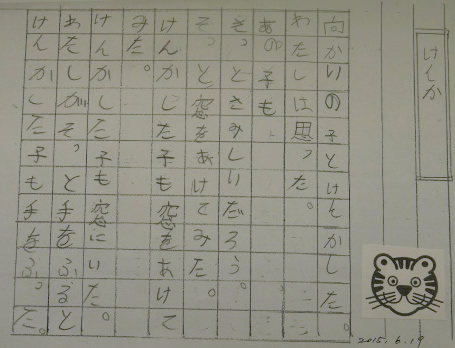 けんか
向かいの子とけんかした。
わたしは思った。
あの子も
きっとさみしいだろう。
そっと窓をあけてみた。
けんかした子も窓をあけて
みた。
けんかした子も窓にいた。
あたしがそっと手をふると
けんかした子も手をふった。
2015.6.19